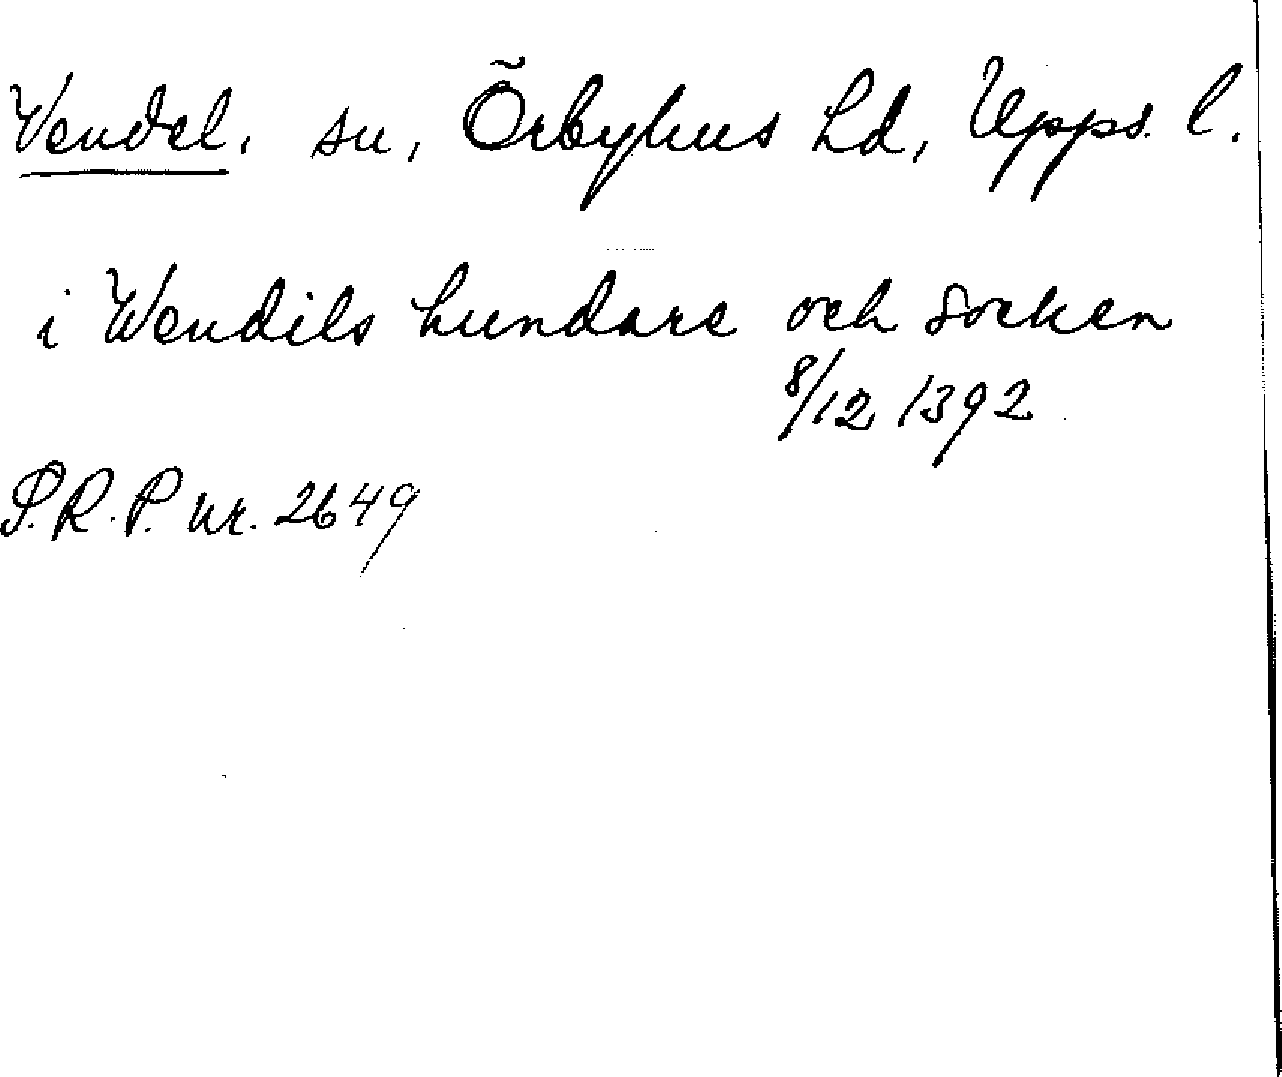 Vendel, sn, Örbyhus hd, Upps. l.
i Wendils hundare och socken
8/12 1392
S.R.P. nr. 2649